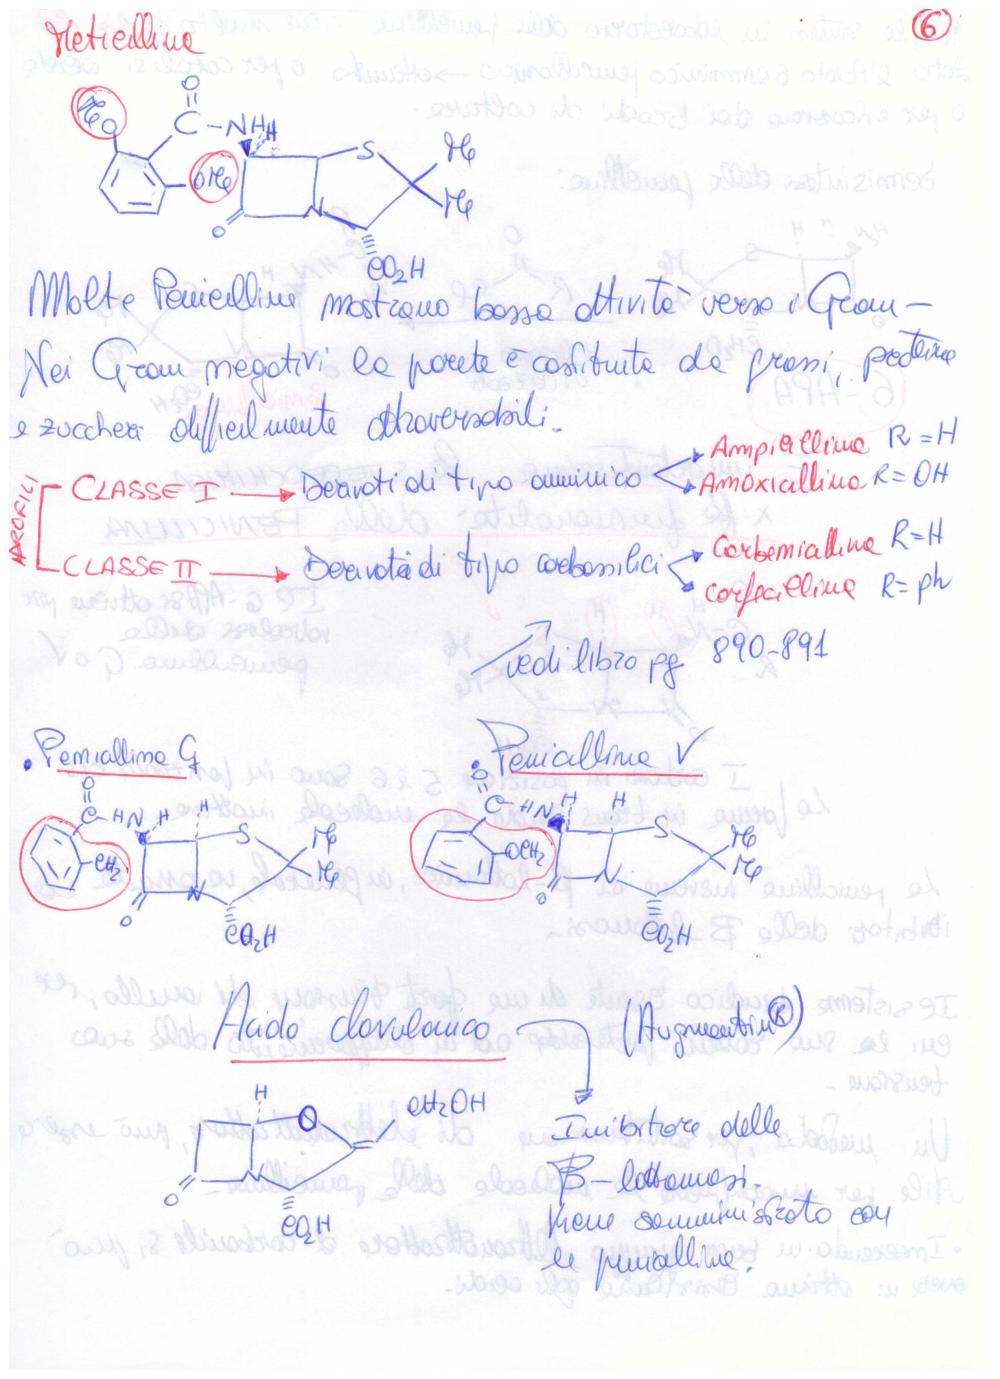 Meticillina
6
MeO
O
C-NH H
OMe
S
Me
Me
N
O
CO2H
Molte Penicilline mostrano bassa attività verso i Gram -
Nei Gram negativi la parete è costituita da grassi, proteine
e zuccheri difficilmente attraversabili.
IDROFILI
CLASSE I → Derivati di tipo amminico
Ampicillina R=H
Amoxicillina R=OH
CLASSE II → Derivati di tipo carbossilici
Carbenicillina R=H
carfecillina R=ph
vedi libro pg 890-891
• Penicillina G
• Penicillina V
O
C-HN H H
CH2
S
Me
Me
N
O
CO2H
O
C-HN H H
OCH2
S
Me
Me
N
O
CO2H
Acido clavulanico
(Augmentin®)
H
O
CH2OH
N
O
CO2H
Inibitore delle
B-lattamasi.
Viene somministrato con
le penicilline.